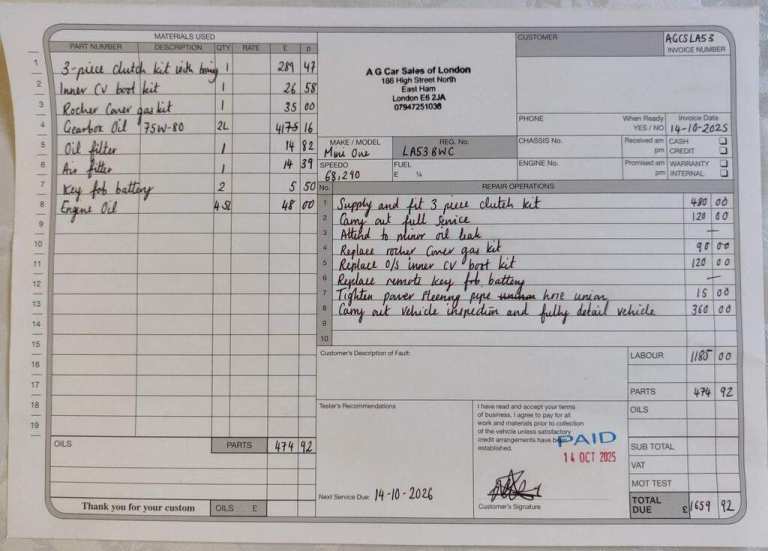 MATERIALS USED
PART NUMBER DESCRIPTION QTY RATE £ p
1 3-piece clutch kit with 1 289 47
2 Inner CV boot kit 1 26 58
3 Rocher Cover gas kit 1 35 00
4 Gearbox Oil 75W-80 2L 16
5 Oil filter 1 14 82
6 Air filter 1 14 39
7 Key fob battery 2 5 50
8 Engine Oil 48 00
9
10
11
12
13
14
15
16
17
18
19
OILS PARTS 474 92
Thank you for your custom OILS £
A G Car Sales of London
High Street North
East Ham
London E6 2JA
07947251038
CUSTOMER
AGCSLA53
INVOICE NUMBER
PHONE When Ready YES / NO Invoice Date 14-10-2025
MAKE / MODEL Mini One
REG. No. LA53 BWC
CHASSIS No. Received am pm CASH CREDIT
SPEEDO 68,290
FUEL E ¼
ENGINE No. Promised am pm WARRANTY INTERNAL
No. REPAIR OPERATIONS
1 Supply and fit 3 piece clutch kit 480 00
2 Carry out full service 120 00
3 Attend to minor oil leak —
4 Replace rocher cover gas kit 90 00
5 Replace O/S inner CV boot kit 120 00
6 Replace remote key fob battery —
7 Tighten power steering pipe hose union 15 00
8 Carry out vehicle inspection and fully detail vehicle 360 00
9
10
Customer's Description of Fault:
LABOUR 1185 00
PARTS 474 92
Tester's Recommendations
I have read and accept your terms
of business. I agree to pay for all
work and materials prior to collection
of the vehicle unless satisfactory
credit arrangements have been
established.
PAID
14 OCT 2025
OILS
SUB TOTAL
VAT
MOT TEST
Next Service Due: 14-10-2026
Customer's Signature
TOTAL DUE £ 1659 92